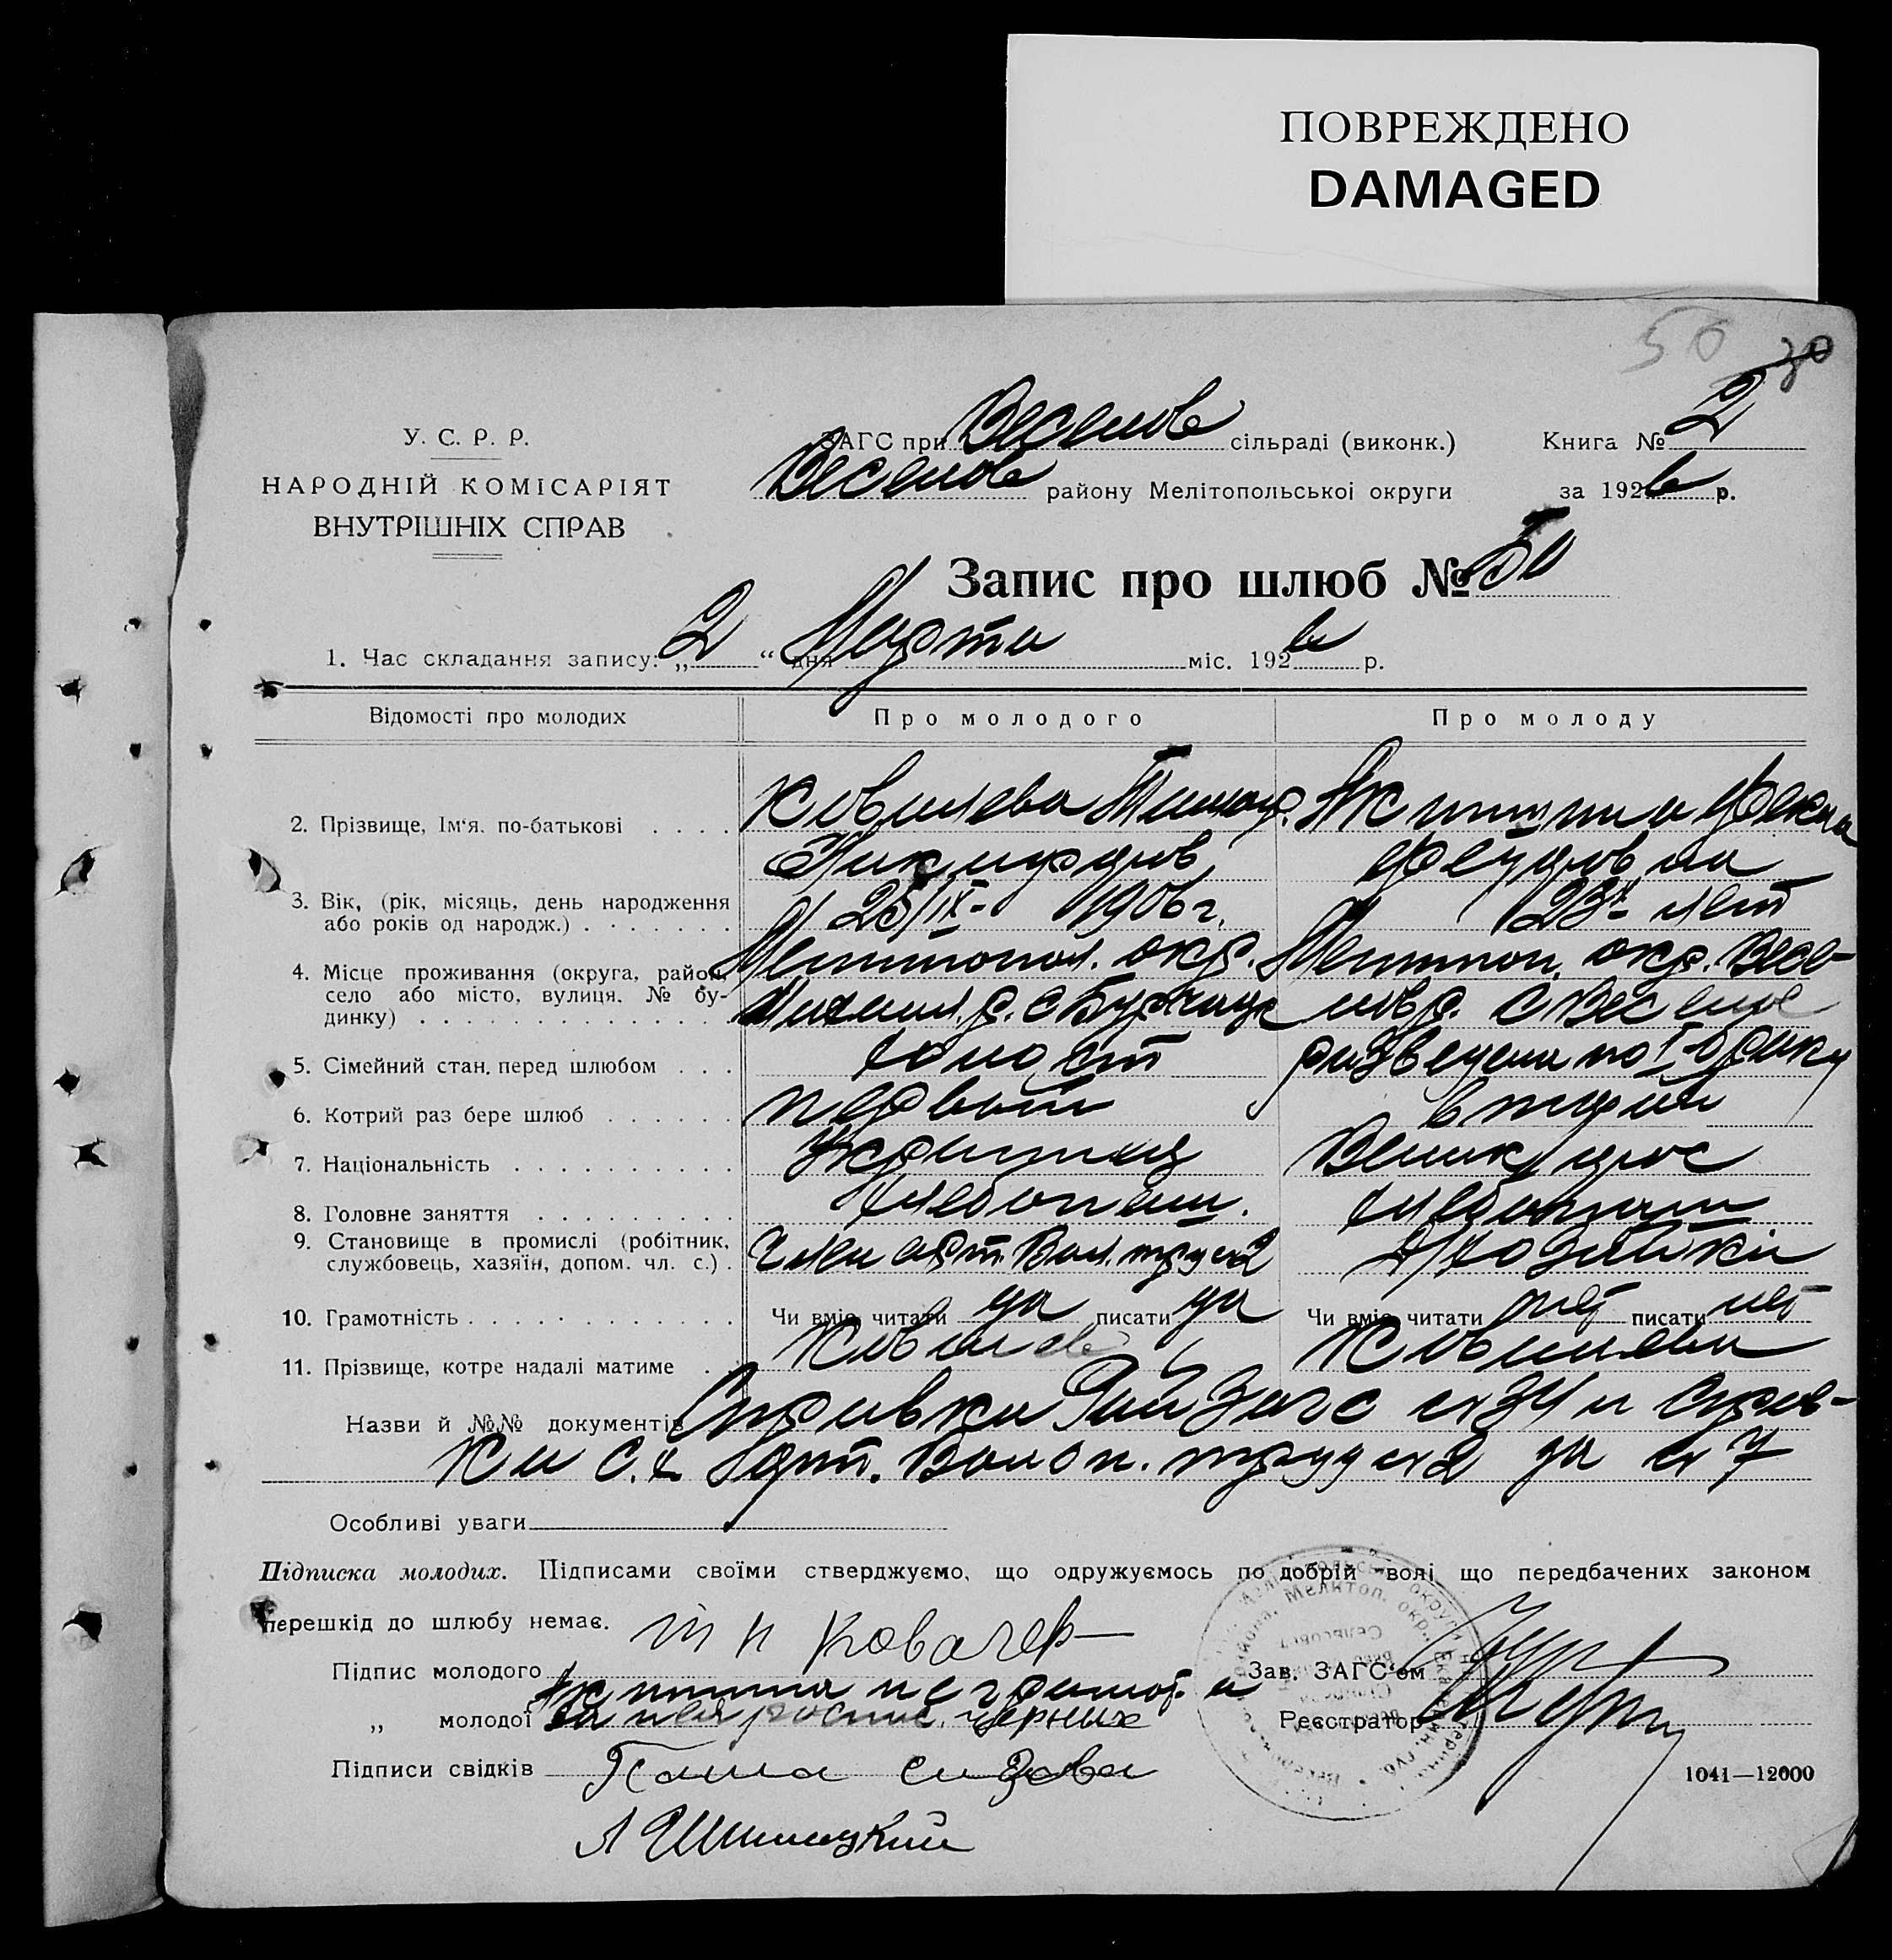 ПОВРЕЖДЕНО
DAMAGED
50 30
У. С. Р. Р.
НАРОДНІЙ КОМІСАРІЯТ
ВНУТРІШНІХ СПРАВ
ЗАГС при Веселов сільраді (виконк.) Книга № 2
Веселов району Мелітопольської округи за 1926 р.
Запис про шлюб № 50
1. Час складання запису: „ 2 “ дня Марта міс. 1926 р.
Відомості про молодих
Про молодого
Про молоду
2. Прізвище, Ім'я. по-батькові . . . .
Фекла
Никифоров
Федоровна
3. Вік, (рік, місяць, день народження
або років од народж.) . . . . . . .
25/IX- 1906 г.
23- лет
4. Місце проживання (округа, район,
село або місто, вулиця. № бу-
динку) . . . . . . . . . . . . . .
Мелитопол. окр.
Мелитоп. окр. Весе-
лов р. с Веселое
5. Сімейний стан. перед шлюбом . . .
холост
разведена по I браку
6. Котрий раз бере шлюб . . . . . .
первый
вторый
7. Національність . . . . . . . . . .
Украинец
Великорос
8. Головне заняття . . . . . . . . .
хлебопаш.
хлебопаш
9. Становище в промислі (робітник,
службовець, хазяїн, допом. чл. с.) .
Член арт. Вол. труд 2
д/хозяйки
10. Грамотність . . . . . . . . . . . .
Чи вміє читати да писати да
Чи вміє читати нет писати нет
11. Прізвище, котре надалі матиме . .
Ковалева
Назви й №№ документів Справки Рай Загс № 34 и Справ-
ки с.х Арт. Волоп. труд № 2 за № 7
Особливі уваги
Підписка молодих. Підписами своїми стверджуємо, що одружуємось по добрій волі що передбачених законом
перешкід до шлюбу немає.
Підпис молодого Т Н Ковалев
„ молодої неграмот. и за нея роспис. Черных
Підписи свідків Паша Сизова
Л
Зав. ЗАГС'ом
Реєстратор
1041—12000